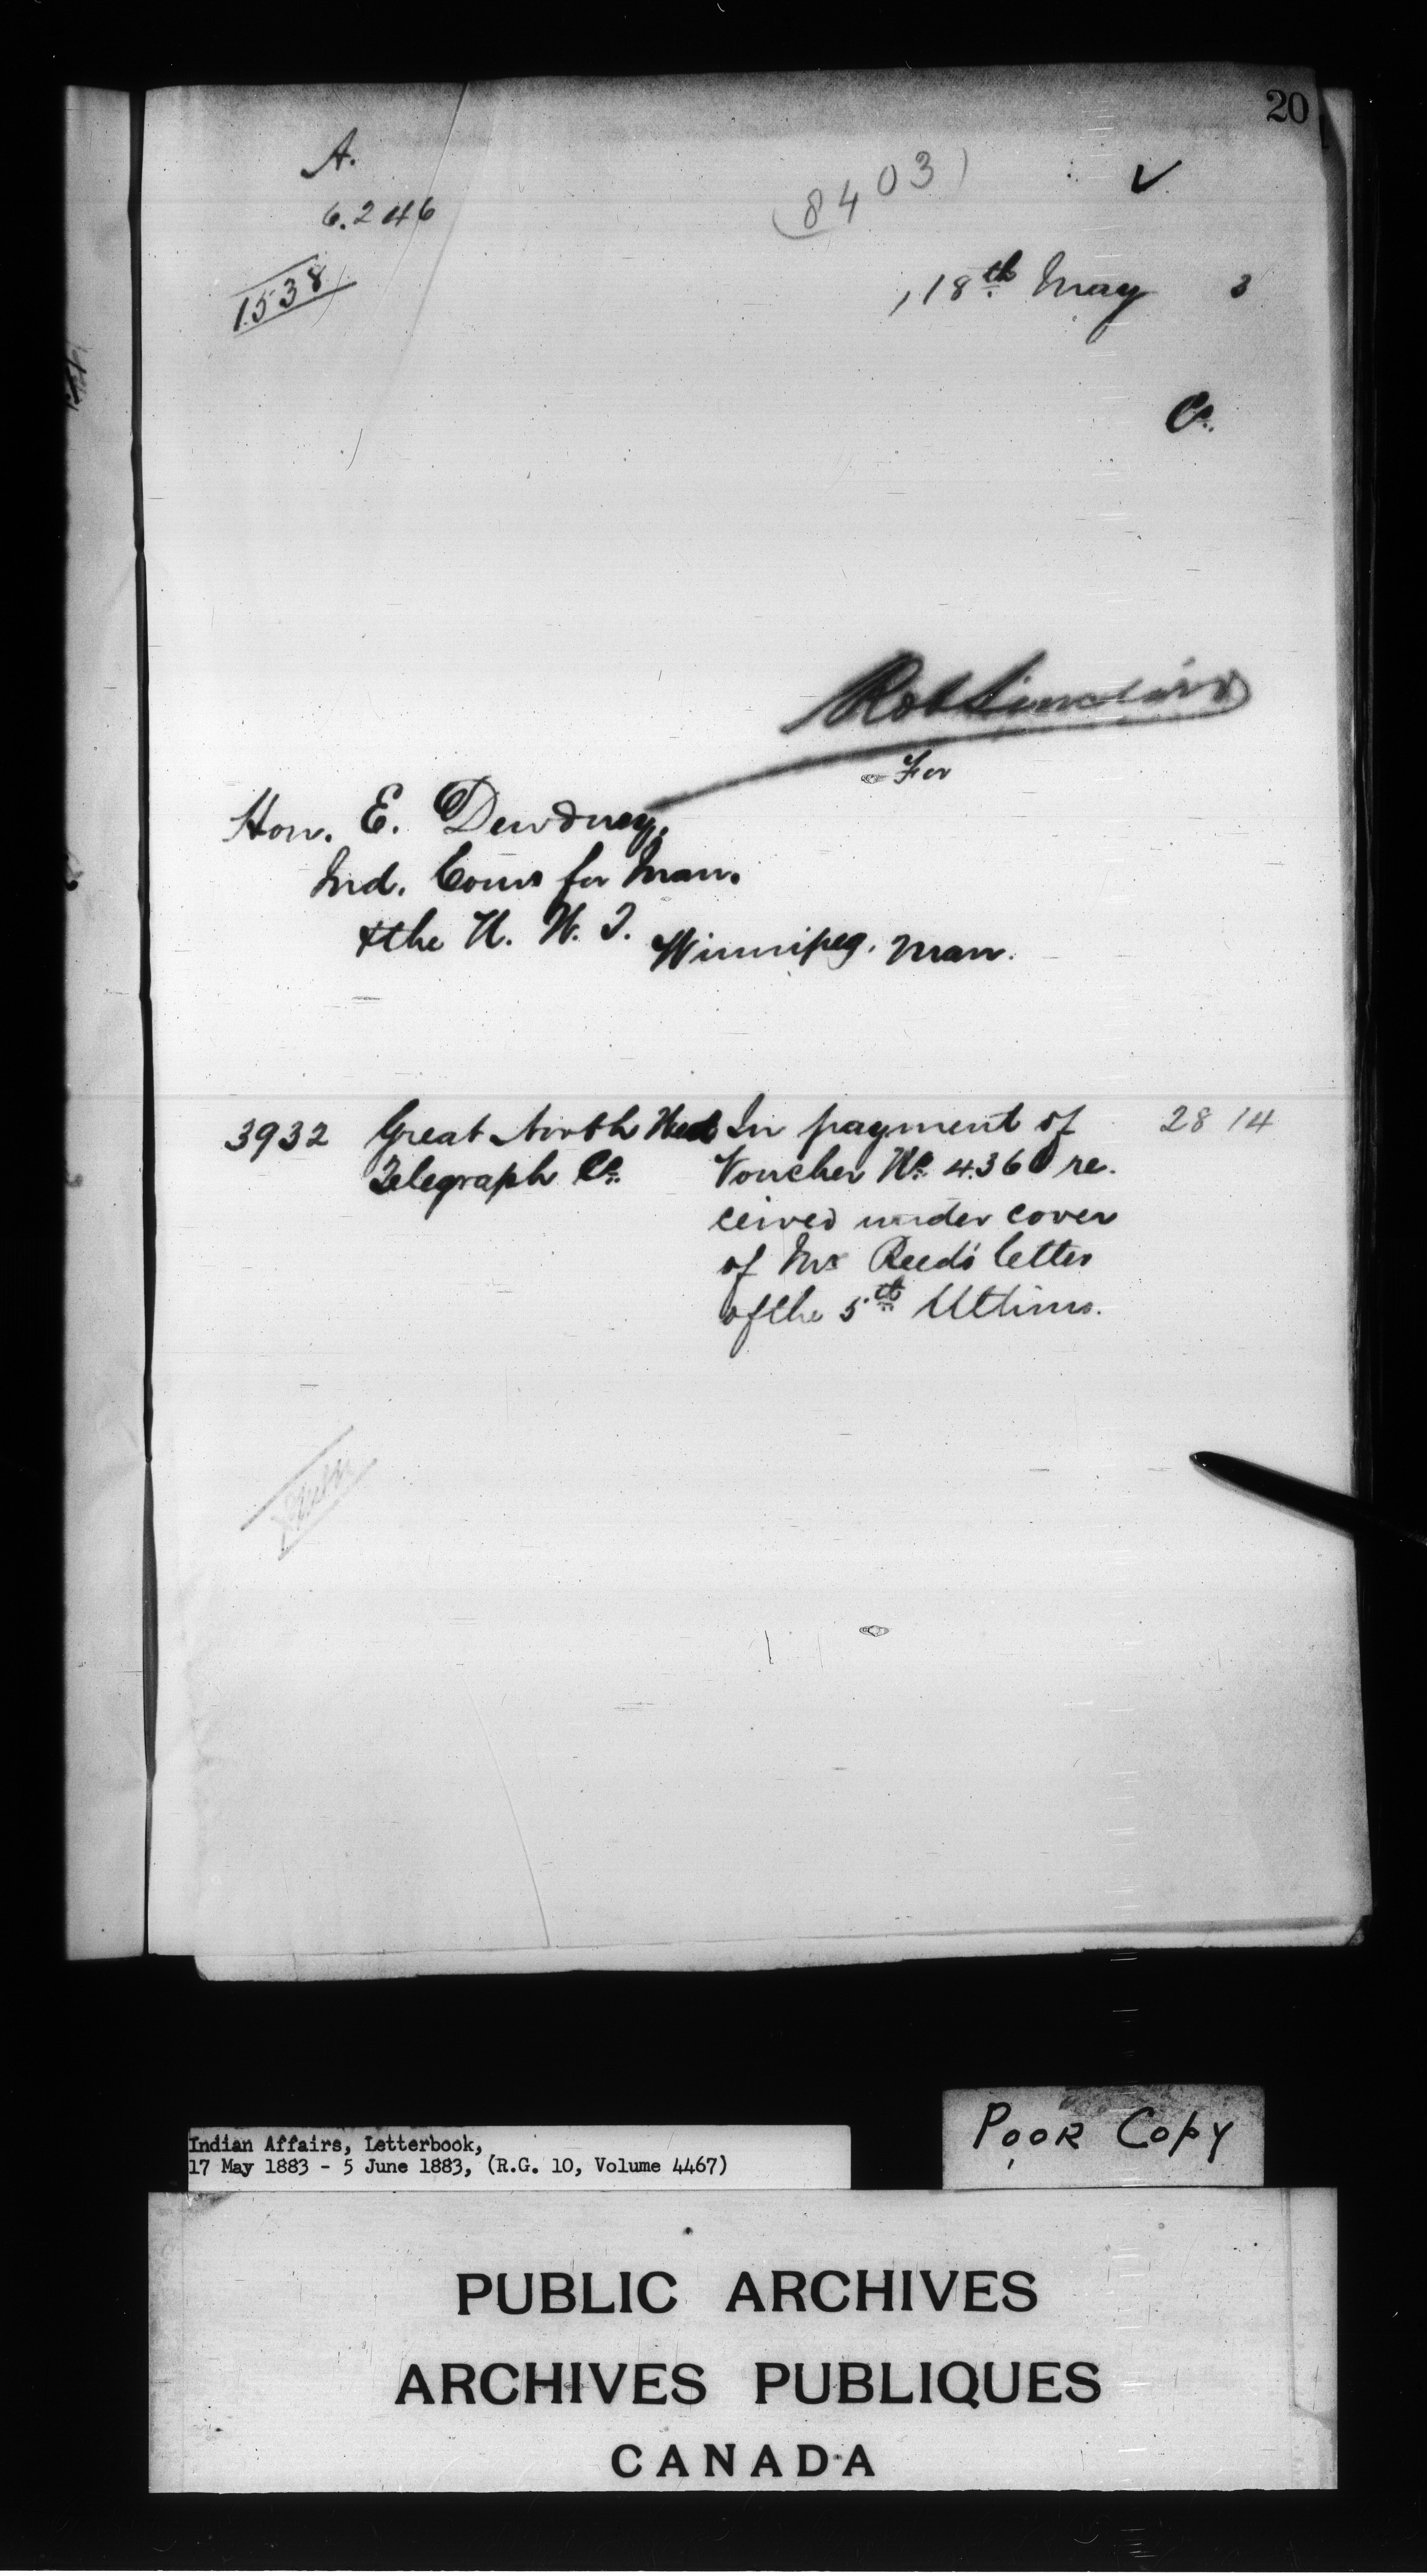 20
A.
6.246
8403
1538
, 18th May 3
C.
Rob Sinclair
For
Hon. E. Dewdney,
Ind. Comr for Man.
& the N. W. T. Winnipeg. Man.
3932 Great North West In payment of 28 14
Telegraph Co. Voucher No. 4360 re.
ceived under cover
of Mr Reed's letter
of the 5th Ultimo.
Indian Affairs, Letterbook,
17 May 1883 - 5 June 1883, (R.G. 10, Volume 4467)
POOR COPY
PUBLIC ARCHIVES
ARCHIVES PUBLIQUES
CANADA